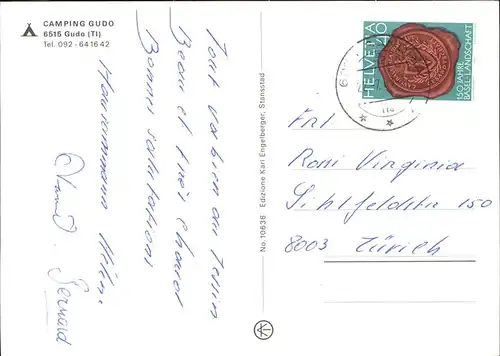 CAMPING GUDO
6515 Gudo (TI)
Tel. 092 - 64 16 42
Tout va bien au Tessin
Beau et très chaud
Bonnes salutations
Hélène
Bernard
No. 10636 Edizione Karl Engelberger, Stansstad
HELVETIA 40
150 JAHRE
BASEL-LANDSCHAFT
Frl
Rossi Virginia
Sihlfeldstr 150
8003 Zürich